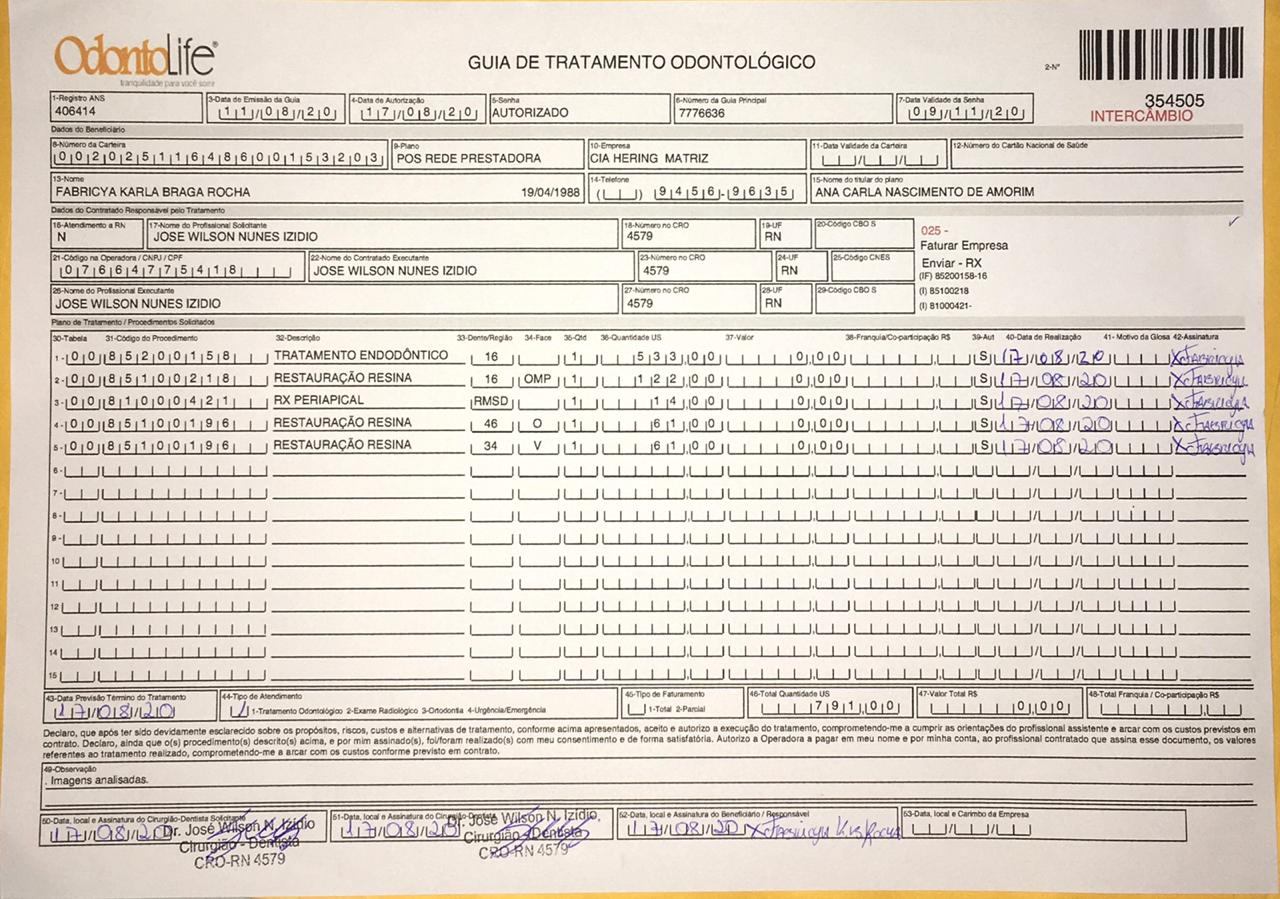 OdontoLife®
tranquilidade para você sorrir
GUIA DE TRATAMENTO ODONTOLÓGICO
2-Nº
354505
INTERCÂMBIO
1-Registro ANS 3-Data de Emissão da Guia 4-Data de Autorização 5-Senha 6-Número da Guia Principal 7-Data Validade da Senha
406414 11/08/20 17/08/20 AUTORIZADO 7776636 09/11/20
Dados do Beneficiário
8-Número da Carteira 9-Plano 10-Empresa 11-Data Validade da Carteira 12-Número do Cartão Nacional de Saúde
00202511648600153203 POS REDE PRESTADORA CIA HERING MATRIZ
13-Nome 14-Telefone 15-Nome do titular do plano
FABRICYA KARLA BRAGA ROCHA 19/04/1988 ( ) 9456-9635 ANA CARLA NASCIMENTO DE AMORIM
Dados do Contratado Responsável pelo Tratamento
16-Atendimento a RN 17-Nome do Profissional Solicitante 18-Número no CRO 19-UF 20-Código CBO S
N JOSE WILSON NUNES IZIDIO 4579 RN
025 -
Faturar Empresa
Enviar - RX
(IF) 85200158-16
(I) 85100218
(I) 81000421-
21-Código na Operadora / CNPJ / CPF 22-Nome do Contratado Executante 23-Número no CRO 24-UF 25-Código CNES
07664775418 JOSE WILSON NUNES IZIDIO 4579 RN
26-Nome do Profissional Executante 27-Número no CRO 28-UF 29-Código CBO S
JOSE WILSON NUNES IZIDIO 4579 RN
Plano de Tratamento / Procedimentos Solicitados
30-Tabela 31-Código do Procedimento 32-Descrição 33-Dente/Região 34-Face 35-Qtd 36-Quantidade US 37-Valor 38-Franquia/Co-participação R$ 39-Aut 40-Data de Realização 41- Motivo da Glosa 42-Assinatura
1- 00 85200158 TRATAMENTO ENDODÔNTICO 16 1 533,00 0,00 S 17/08/20 X Fabricya
2- 00 85100218 RESTAURAÇÃO RESINA 16 OMP 1 122,00 0,00 S 17/08/20 X Fabricya
3- 00 81000421 RX PERIAPICAL RMSD 1 14,00 0,00 S 17/08/20 X Fabricya
4- 00 85100196 RESTAURAÇÃO RESINA 46 O 1 61,00 0,00 S 17/08/20 X Fabricya
5- 00 85100196 RESTAURAÇÃO RESINA 34 V 1 61,00 0,00 S 17/08/20 X Fabricya
6-
7-
8-
9-
10
11
12
13
14
15
43-Data Previsão Término do Tratamento 44-Tipo de Atendimento 45-Tipo de Faturamento 46-Total Quantidade US 47-Valor Total R$ 48-Total Franquia / Co-participação R$
17/08/20 1-Tratamento Odontológico 2-Exame Radiológico 3-Ortodontia 4-Urgência/Emergência 1-Total 2-Parcial 791,00 0,00
Declaro, que após ter sido devidamente esclarecido sobre os propósitos, riscos, custos e alternativas de tratamento, conforme acima apresentados, aceito e autorizo a execução do tratamento, comprometendo-me a cumprir as orientações do profissional assistente e arcar com os custos previstos em
contrato. Declaro, ainda que o(s) procedimento(s) descrito(s) acima, e por mim assinado(s), foi/foram realizado(s) com meu consentimento e de forma satisfatória. Autorizo a Operadora a pagar em meu nome e por minha conta, ao profissional contratado que assina esse documento, os valores
referentes ao tratamento realizado, comprometendo-me a arcar com os custos conforme previsto em contrato.
49-Observação
. Imagens analisadas.
50-Data, local e Assinatura do Cirurgião-Dentista Solicitante 51-Data, local e Assinatura do Cirurgião-Dentista 52-Data, local e Assinatura do Beneficiário / Responsável 53-Data, local e Carimbo da Empresa
17/08/20 Dr. José Wilson N. Izidio 17/08/20 Dr. José Wilson N. Izidio, 17/08/20 X Fabricya
Cirurgião - Dentista Cirurgião - Dentista
CRO-RN 4579 CRO-RN 4579